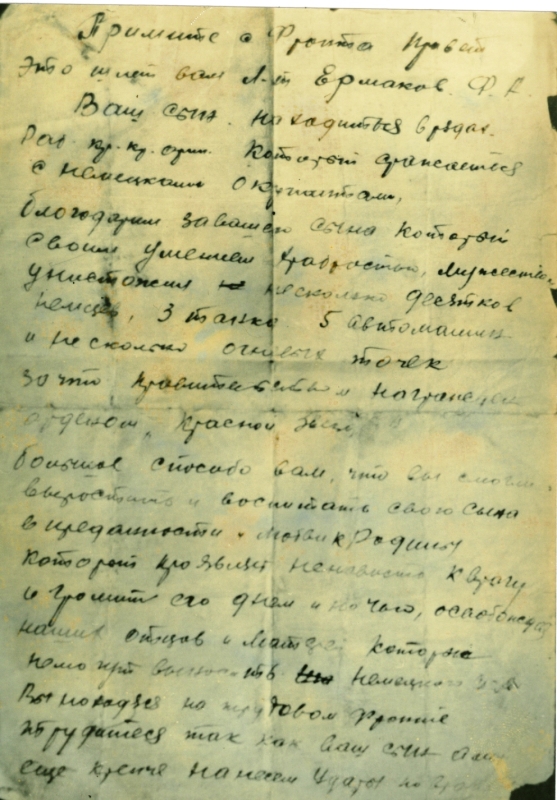 Примите с Фронта Привет
Это шлет вам Л-т Ермаков Ф. А.
Ваш сын. находиться в рядах.
кр. кр. арм. Который сражается
с немецкими окупантами,
благодарим за вашего сына который
своим умением храбростью, мужеством
уничтожил несколько десятков
немцев, 3 танка 5 автомашин
и несколько огневых точек
за что правительством награжден
орденом „Красной Звезд
большое спосибо вам, что вы смогли
выростить и воспитать своего сына
в преданности и любви к Родины
который проявляет ненависть к врагу
и громит его днем и ночью, освобождает
наших отцов и матерей которые
немогут выносить немецкого
Вы находясь на трудовом фронте
трудитеся так как ваш сын а мы
еще крепче нанесем удары по врагу